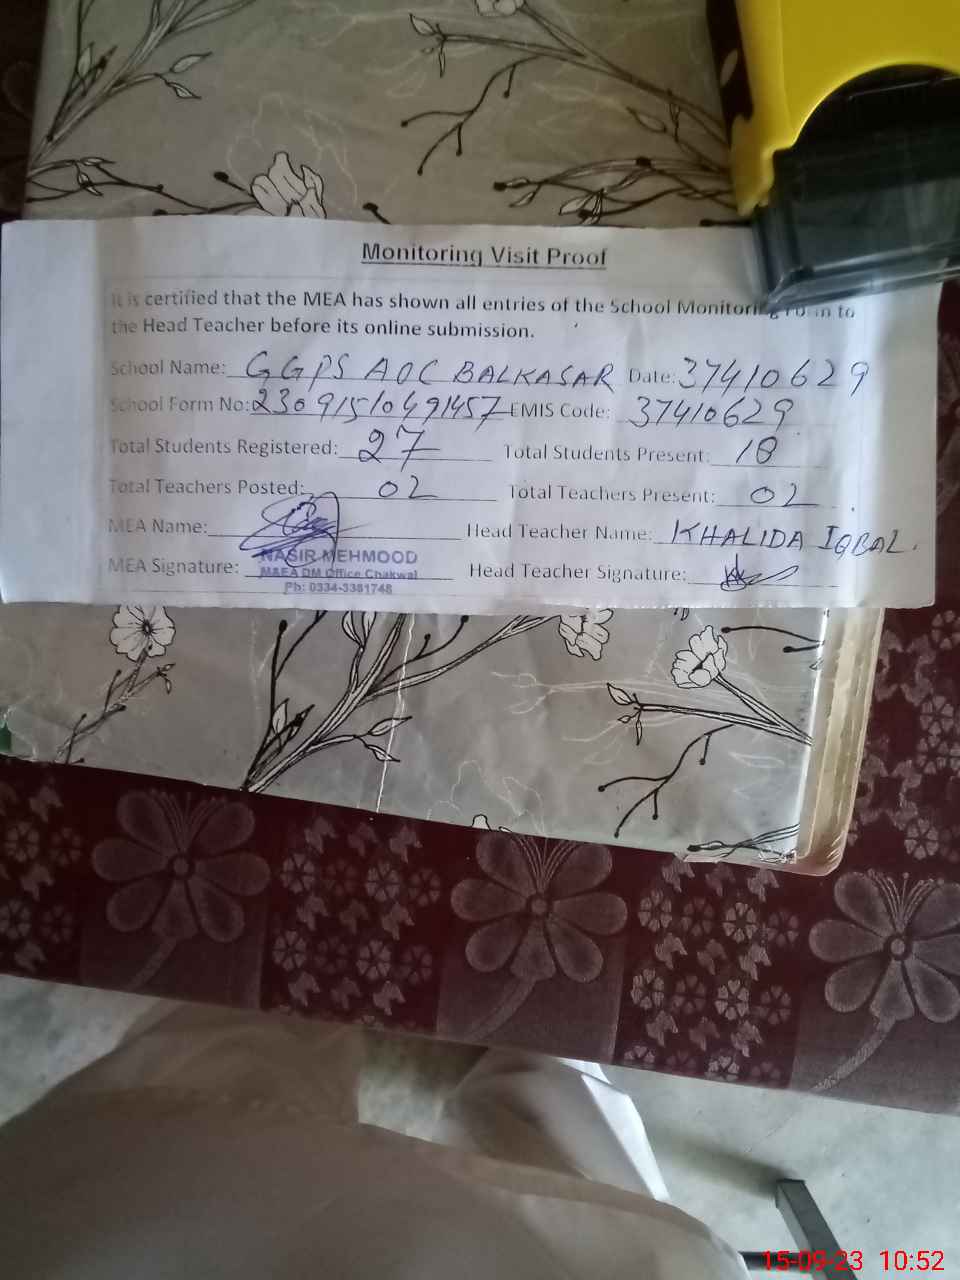 Monitoring Visit Proof
It is certified that the MEA has shown all entries of the School Monitoring Form to
the Head Teacher before its online submission.
School Name: GGPS AOC BALKASAR Date: 37410629
School Form No: 23091510491457 EMIS Code: 37410629
Total Students Registered: 27 Total Students Present: 18
Total Teachers Posted: 02 Total Teachers Present: 02
MEA Name: Head Teacher Name: KHALIDA IQBAL.
MEA Signature: Head Teacher Signature:
NASIR MEHMOOD
M&EA DM Office Chakwal
Ph: 0334-3381748
15-09-23 10:52